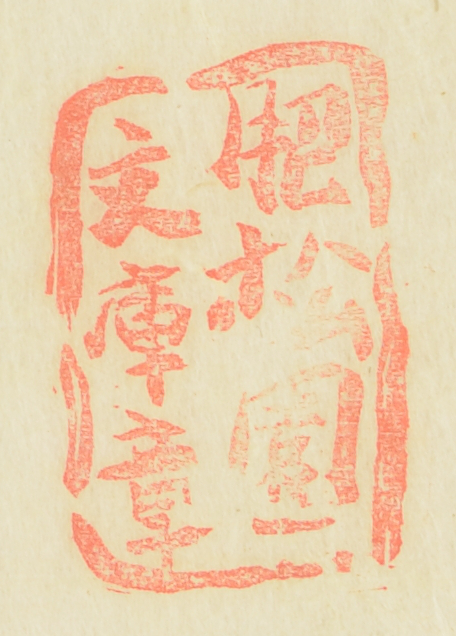 肥松園
文庫章